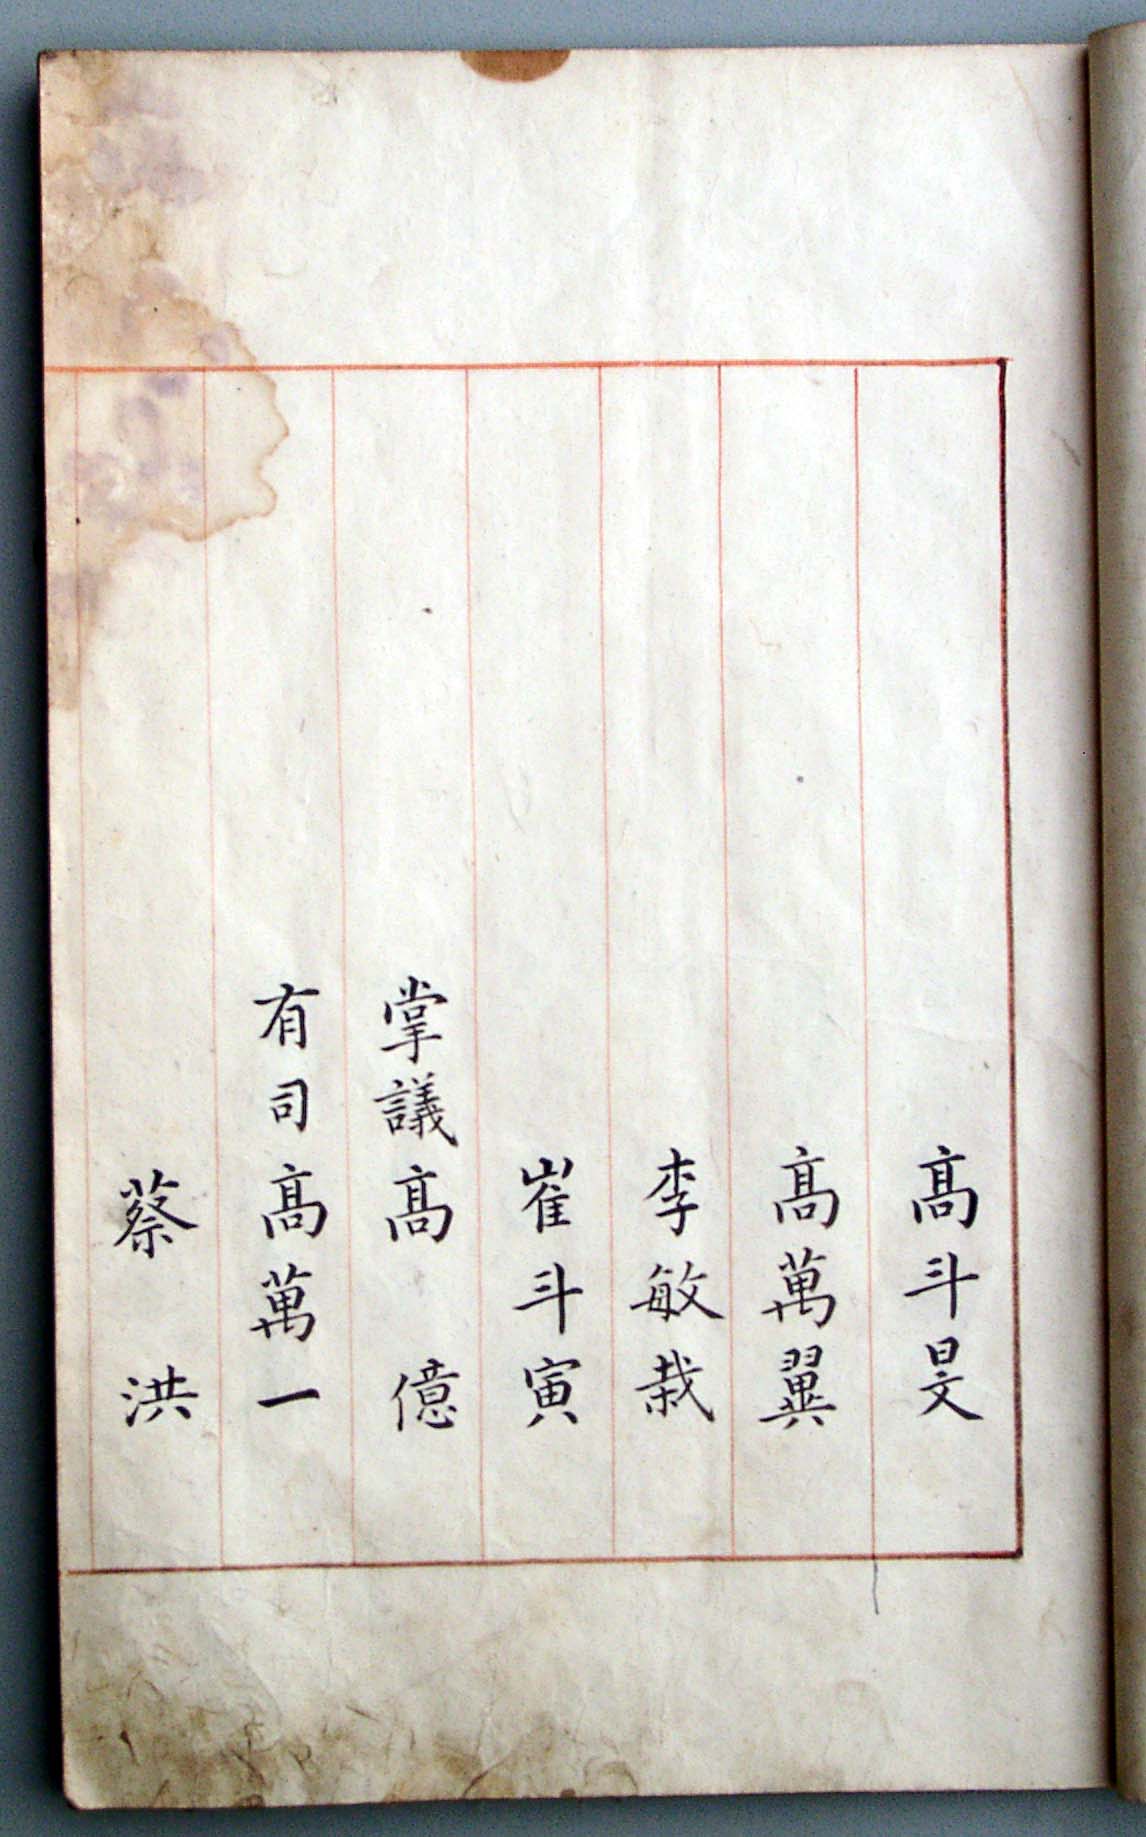 髙斗旻
髙萬翼
李敏栽
崔斗寅
掌議髙 億
有司髙萬一
蔡 洪